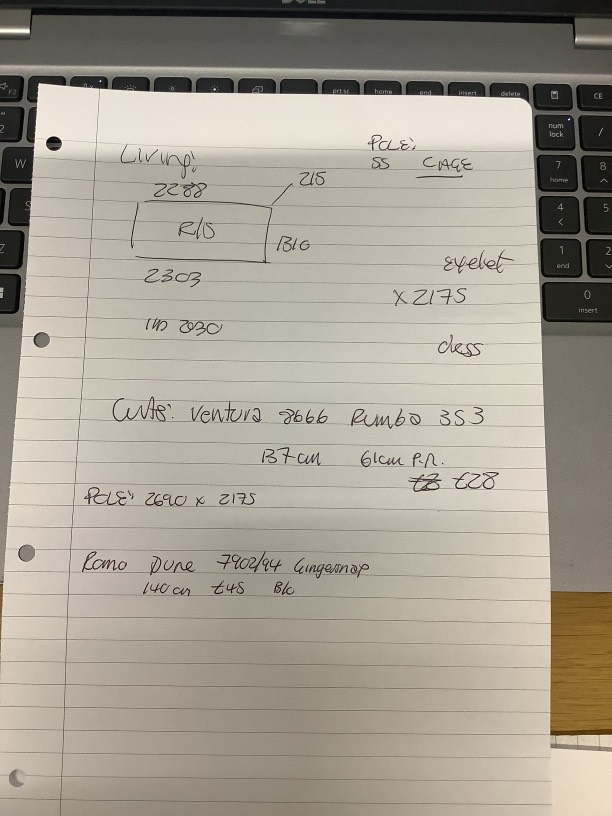 Living:
POLE:
SS CAGE
2288
215
R/S
B/G
2303
eyelet
x 2175
2030
class
Curts: Ventura 8666 Rumba 353
137cm 61cm P.R.
£28
POLE: 2690 x 2175
Romo Dune 7902/94 Gingersnap
140cm £45 B/C
prt sc
home
end
insert
delete
num
lock
7
home
8
4
5
1
end
2
0
insert
CE
W
Z